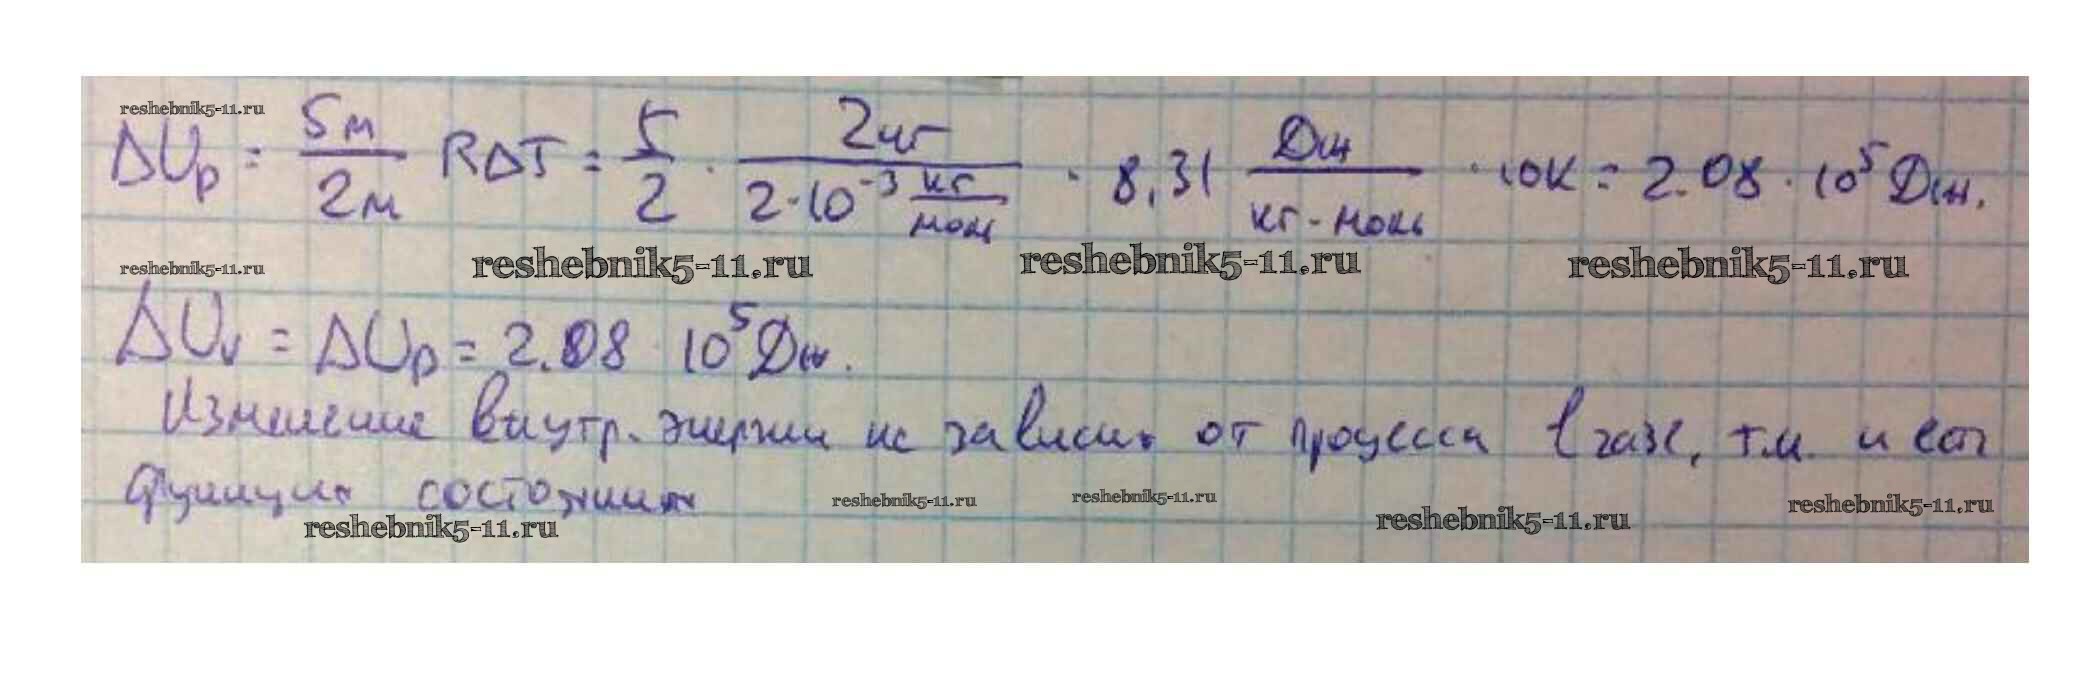 reshebnik5-11.ru
ΔUp = 5м/2м RΔT = 5/2 · 2кг/2·10⁻³ кг/моль · 8,31 Дж/кг-моль · 10К = 2.08 · 10⁵ Дж.
reshebnik5-11.ru reshebnik5-11.ru reshebnik5-11.ru reshebnik5-11.ru
ΔUv = ΔUp = 2.08 10⁵ Дж.
Изменение внутр. энергии не зависит от процесса в газе, т.к. и есть
функция состояния
reshebnik5-11.ru reshebnik5-11.ru reshebnik5-11.ru reshebnik5-11.ru reshebnik5-11.ru